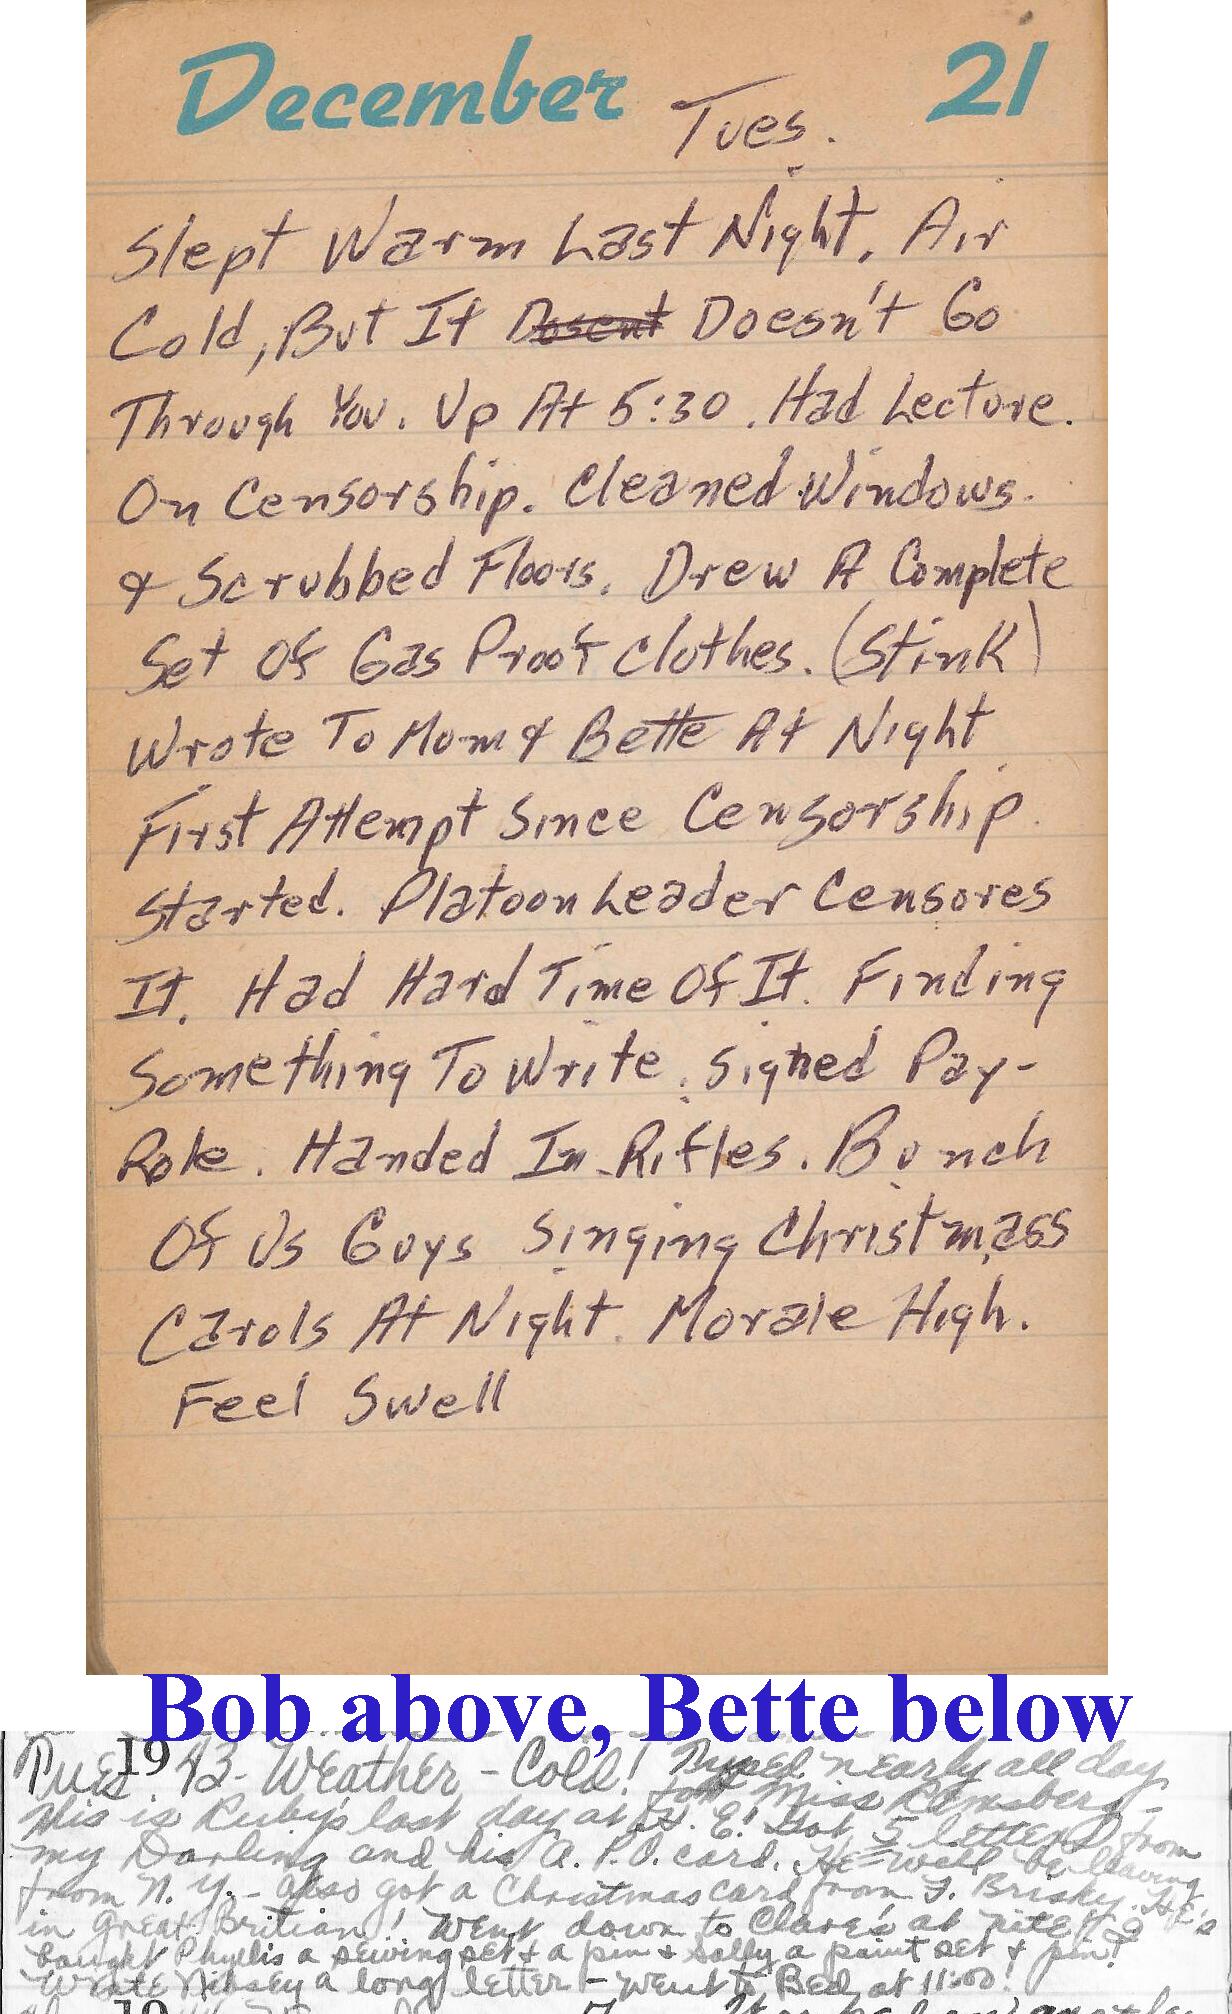 December Tues. 21
Slept Warm Last Night. Air
Cold, But It Dosent Doesn't Go
Through You. Up At 5:30. Had Lecture.
On Censorship. Cleaned Windows.
& Scrubbed Floors. Drew A Complete
Set Of Gas Proof Clothes. (Stink)
Wrote To Mom & Bette At Night
First Attempt Since Censorship.
Started. Platoon Leader Censores
It. Had Hard Time Of It. Finding
Something To Write. Signed Pay-
Role. Handed In Rifles. Bunch
Of Us Guys Singing Christmass
Carols At Night. Morale High.
Feel Swell
Bob above, Bette below
Tues 1943 - Weather - Cold! Typed nearly all day
for Miss Ramsberg -
This is Ruby's last day at G. E! Got 5 letters from
my Darling and his A. P. O. card. He well be leaving
from N. Y. - also got a Christmas card from F. Briskey. He's
in Great Britian! Went down to Clare's at nite.
bought Phyllis a sewing set & a pin & Sally a paint set & pin!
Wrote a long letter - Went to Bed at 11:00!
19